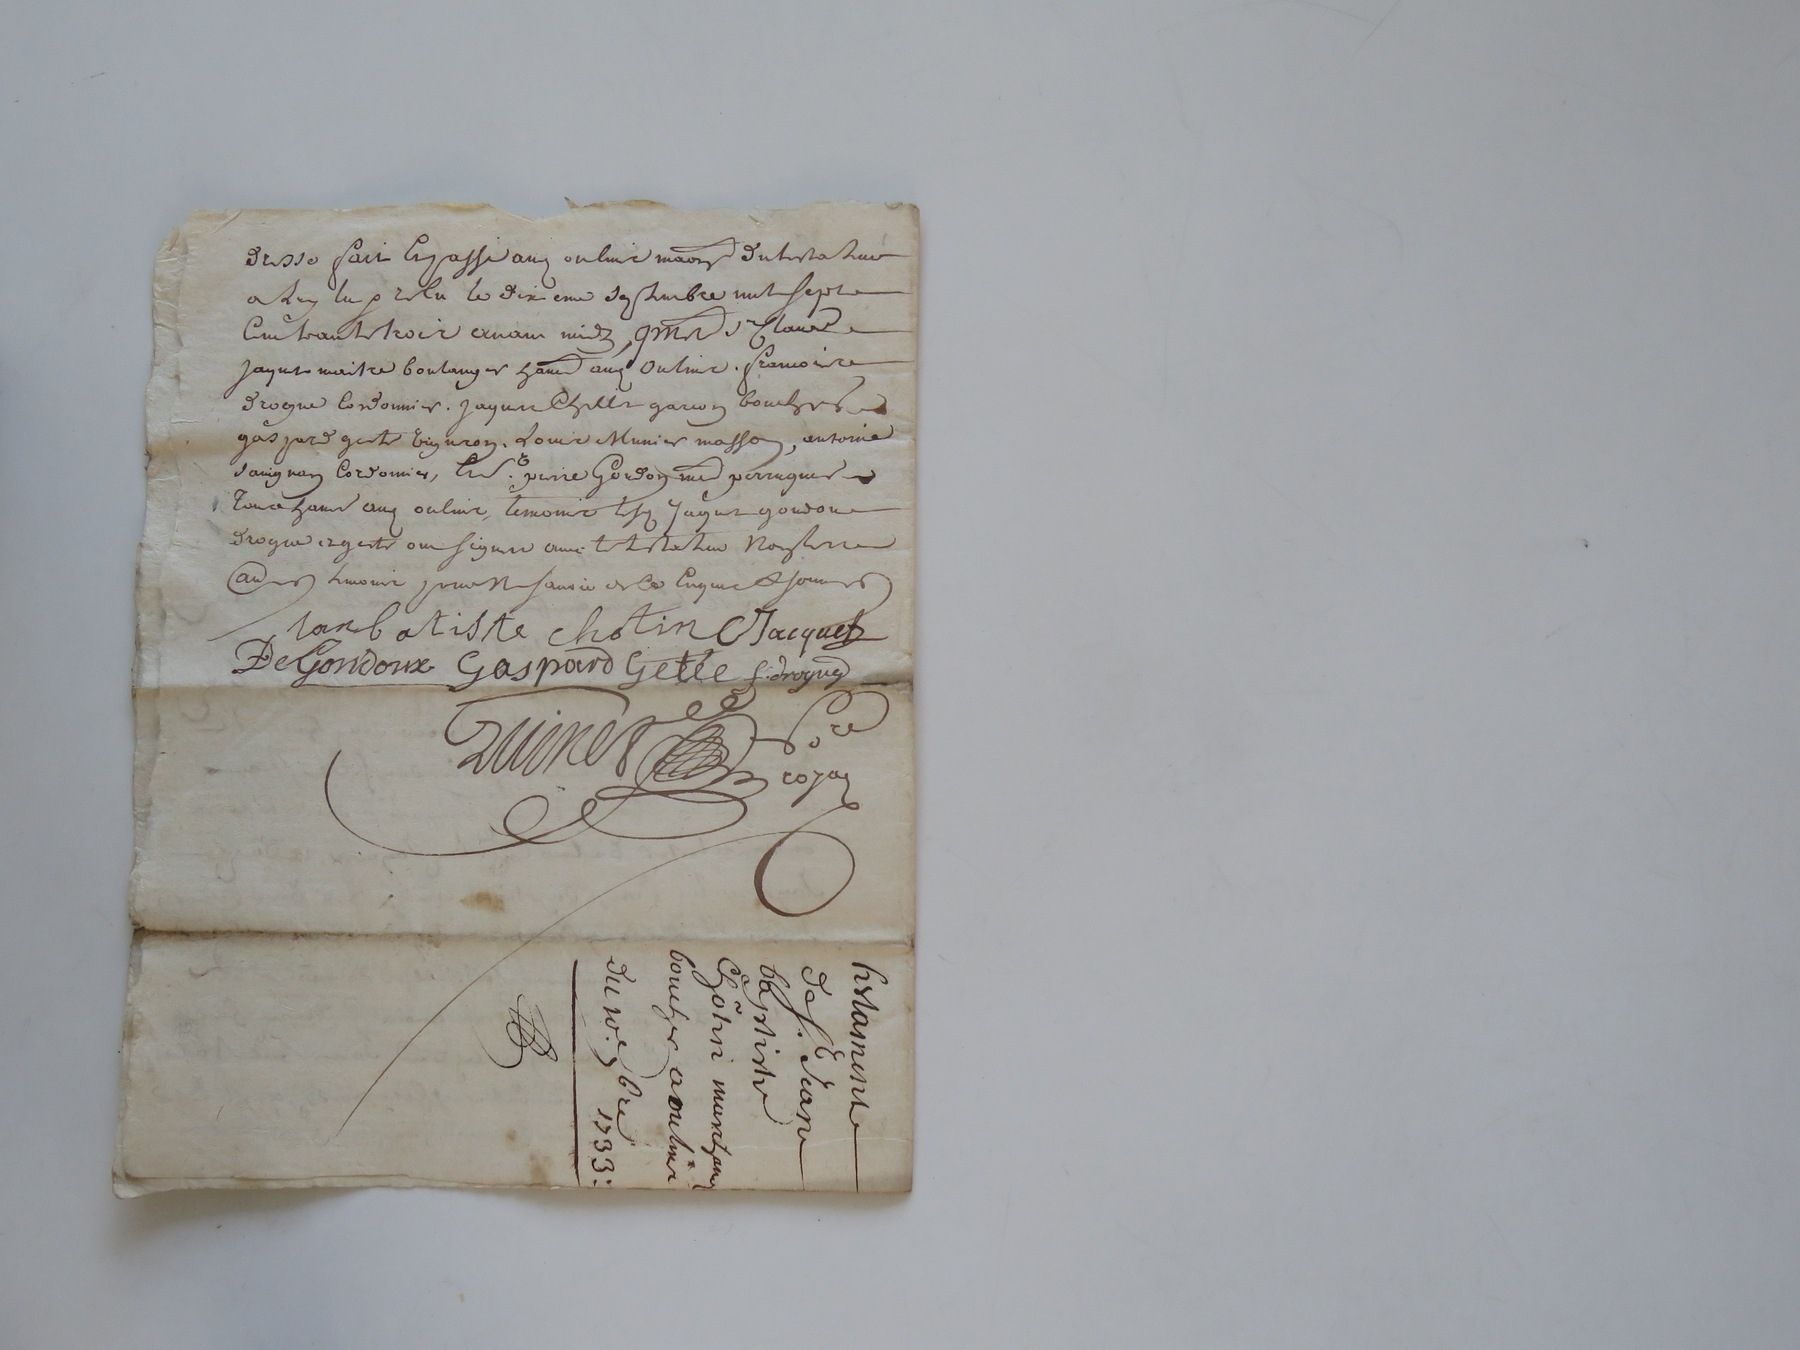 dresse fait et passé aux oulins maon du testateur
a luy lu p relu le dixieme septembre mil sept
cent trante trois avant midy, pnts sr Claude
jaques maitre boulanger hant aux Oulins. francoise
drogue cordonnier. jaques garcon boucher
gaspard gette vigneron. Louis Munier masson, antoine
savignan cordonnier, et sr. pierre Gordon md perruquier
tous hants aux oulins, temoins lesq jaques
drogue et gette ont signes avec le testateur Non les
autres temoins pour ne savoir de ce enquis & sommés
ian batiste chotin Jacques
De Gondoux Gaspard Gette f. drogue
re
royal
testament
de s. Jean
bapriste
Chotin marchand
boucher a oulins
du 10.e 7bre 1733: